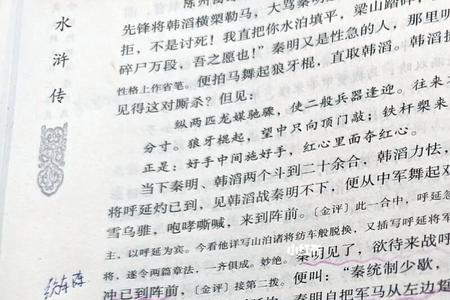 水浒传
先锋将韩滔横槊勒马，大骂秦明
拒，不是讨死！我直把你水泊填平，梁山踏碎
碎尸万段，吾之愿也！”秦明又是性急的人，那里
性格上作省笔。便拍马舞起狼牙棍，直取韩滔。韩滔
见得这对厮杀？但见：
纵两匹龙媒驰骤，使二般兵器逢迎。往来
分寸。狼牙棍起，望中只向顶门敲；铁杆槊来
正是：好手中间施好手，红心里面夺红心。
当下秦明、韩滔两个斗到二十余合，韩滔力怯，
将呼延灼已到，见韩滔战秦明不下，便从中军舞起双
雪乌骓，咆哮嘶喊，来到阵前。［金评］此一合中，呼延
主、以呼延为宾。今看他详写山泊诸将纺车般脱换，又插写呼延将军
将，遂令两篇章法，一齐俱成。妙绝。秦明见了，欲待来战呼
冲已到阵前，［金评］接第二拨。便叫：“秦统制少歇，
秦明自把军马从左边
小红书